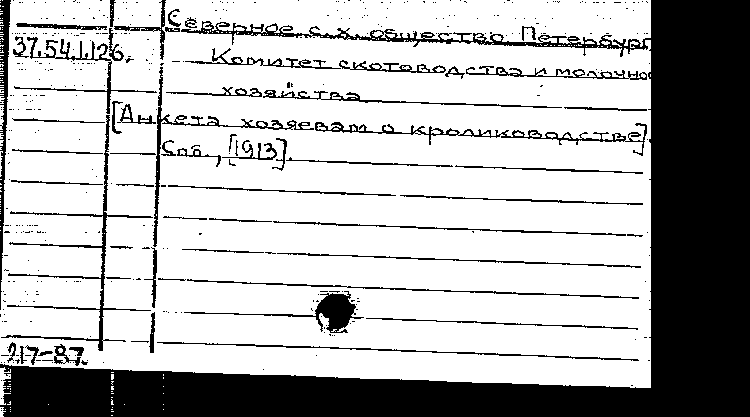 Северное с.х. общество Петербург
37.54.1.126. Комитет скотоводства и молочно
хозяйства
[Анкета хозяевам о кролиководстве].
Спб., [1913].
217-87